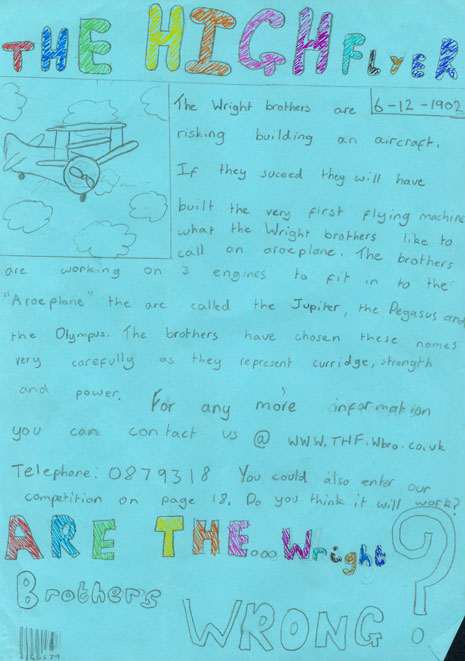 THE HIGH FLYER
The Wright brothers are 6-12-1902
risking building an aircraft.
If they suceed they will have
built the very first flying machine
what the Wright brothers like to
call an aroeplane. The brothers
are working on 3 engines to fit in to the
"Aroeplane" the are called the Jupiter, the Pegasus and
the Olympus. The brothers have chosen these names
very carefully as they represent curridge, strength
and power. For any more information
you can contact us @ WWW.THF.Wbro.co.uk
Telephone: 0879318 You could also enter our
competition on page 18. Do you think it will work?
ARE THE... Wright
Brothers
WRONG?